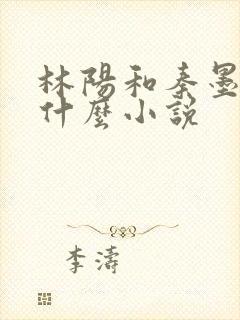 林陽和秦墨
什麼小說
李濤